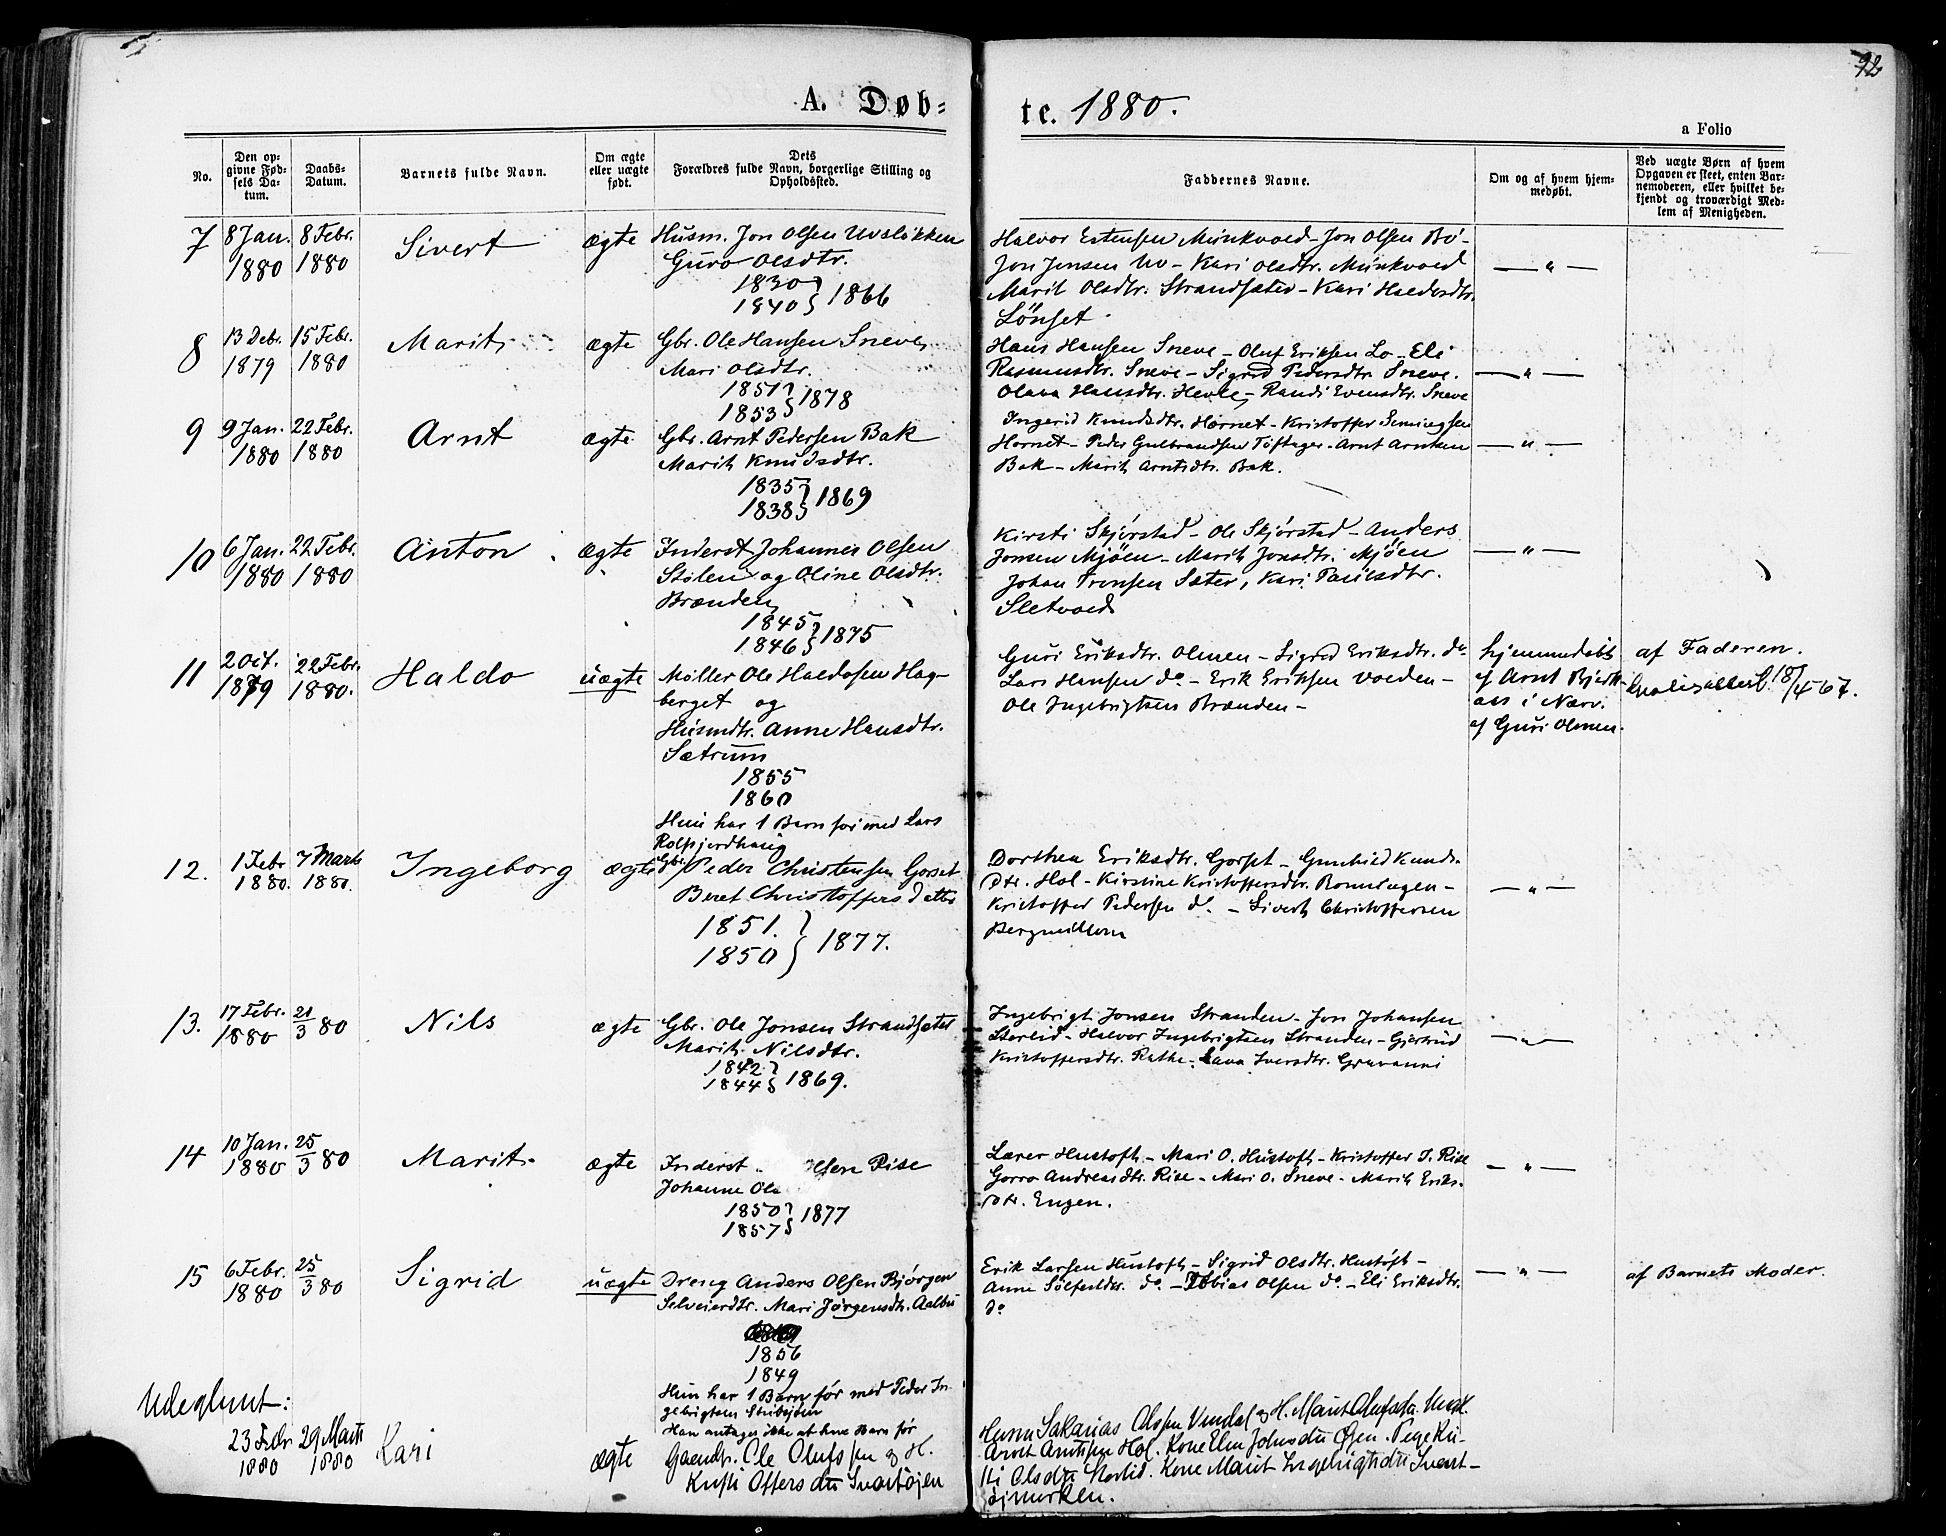 92
A. Døb=
te. 1880.
a Folio
No.
Den op-
givne Fød-
sels Da-
tum.
Daabs-
Datum.
Barnets fulde Navn.
Om ægte
eller uægte
født.
Dets
Forældres fulde Navn, borgerlige Stilling og
Opholdssted.
Faddernes Navne.
Om og af hvem hjem-
medøbt.
Ved uægte Børn af hvem
Opgaven er skeet, enten Bar-
nemoderen, eller hvilket be-
kjendt og troværdigt Med-
lem af Menigheden.
7
8 Jan.
1880
8 Febr.
1880
Sivert
ægte
Husm. Jon Olsen Uvsløkken
Guro Olsdtr.
1830
1840 } 1866
Halvor Estensen Munkvold - Jon Olsen Bø -
Jon Jensen Uv - Kari Olsdtr. Munkvold
Marit Olsdtr. Strandsæter - Kari Haldosdtr.
Lønset
— " —
8
13 Debr.
1879
15 Febr.
1880
Marit
ægte
Gbr. Ole Hansen Sneve,
Mari Olsdtr.
1851
1853 } 1878
Hans Hansen Sneve - Oluf Eriksen Lo - Eli
Rasmusdtr. Sneve - Sigrid Pedersdtr. Sneve.
Olava Hansdtr. Hevle, Randi Evensdtr. Sneve
— " —
9
9 Jan.
1880
22 Febr.
1880
Arnt
ægte
Gbr. Arnt Pedersen Bak
Marit Knudsdtr.
1835
1838 } 1869
Ingerid Knudsdtr. Hornet - Kristoffer Semingsen
Hornet - Peder Gulbrandsen Toftager - Arnt Arntsen
Bak - Marit Arntsdtr. Bak.
— " —
10
6 Jan.
1880
22 Febr.
1880
Anton
ægte
Inderst Johannes Olsen
Stølen og Oline Olsdtr.
Brænden
1845
1846 } 1875
Kirsti Skjørstad - Ole Skjørstad - Anders
Jonsen Mjøen - Marit Jonsdtr. Mjøen
Johan Sæter, Kari Paulsdtr.
Sletvold
— " —
11
2 Oct.
1879
22 Febr.
1880.
Haldo
uægte
Møller Ole Haldosen Hag-
berget og
Husmdtr. Anne Hansdtr.
Sætrum
1855
1860
Hun har 1 Barn før med Lars
Guri Eriksdtr. Olmen - Sigrid Eriksdtr. do
Lars Hansen do - Erik Eriksen Volden -
Ole Ingebrigtsen Brænden -
hjemmedøbt
af Arnt Bjerk-
aas i Nærv.
af Guri Olmen.
af Faderen.
18/4 67.
12.
1 Febr
1880.
7 Marts
1880.
Ingeborg
ægte
Gbr. Peder Christensen Gorset
Beret Christoffersdatter
1851.
1850 } 1877.
Dorthea Eriksdtr. Gorset - Gunhild Knuds-
dtr. Hol - Kirstine Kristoffersdtr.
Kristoffer Pedersen do. - Sivert Christoffersen
— " —
13.
17 Febr.
1880
21/3 80
Nils
ægte
Gbr. Ole Jonsen Strandsæter
Marit Nilsdtr.
1842
1844 } 1869.
Ingebrigt Jonsen Stranden - Jon Johansen
Storlid - Halvor Ingebrigtsen Stranden - Gjertrud
Kristoffersdtr. Rathe. Lava Iversdtr. Gravauni
— " —
14
10 Jan.
1880
25/3 80
Marit
ægte
Inderst Olsen Rise
Johanne Ols
1850
1857 } 1877
Lærer Hustoft - Mari O. Hustoft - Kristoffer J. Rise
Gorro Andreasdtr. Rise - Mari O. Sneve - Marit Eriks-
dtr. Engen.
— " —
15
6 Febr.
1880
25/3 80
Sigrid
uægte
Dreng Anders Olsen Bjørgen
Selveierdtr. Mari Jørgensdtr. Aalbu
1856
1849
Hun har 1 Barn før med Peder In-
gebrigtsen
Han antages ikke at have Barn før
Erik Larsen Hustoft - Sigrid Olsdtr. Hustoft -
Anne Sølfestdtr. do - Tobias Olsen do - Eli Eriksdtr.
do
— " —
af Barnets Moder.
Udeglemt:
23 Febr
1880
29 Marts
1880
Kari
ægte
Gaardbr. Ole Olufssen og H.
Kirsti Olfersdtr Svartøjen
Husm Sakarias Olssen Vindal og H. Marit Olufsdtr
Arnt Arntssen Hol. Kone Elen Johnsdtr Øjen. Pige Ki-
sti Olsdtr Storlid. Kone Marit Ingebrigtsdtr Svart-
øjmarken.